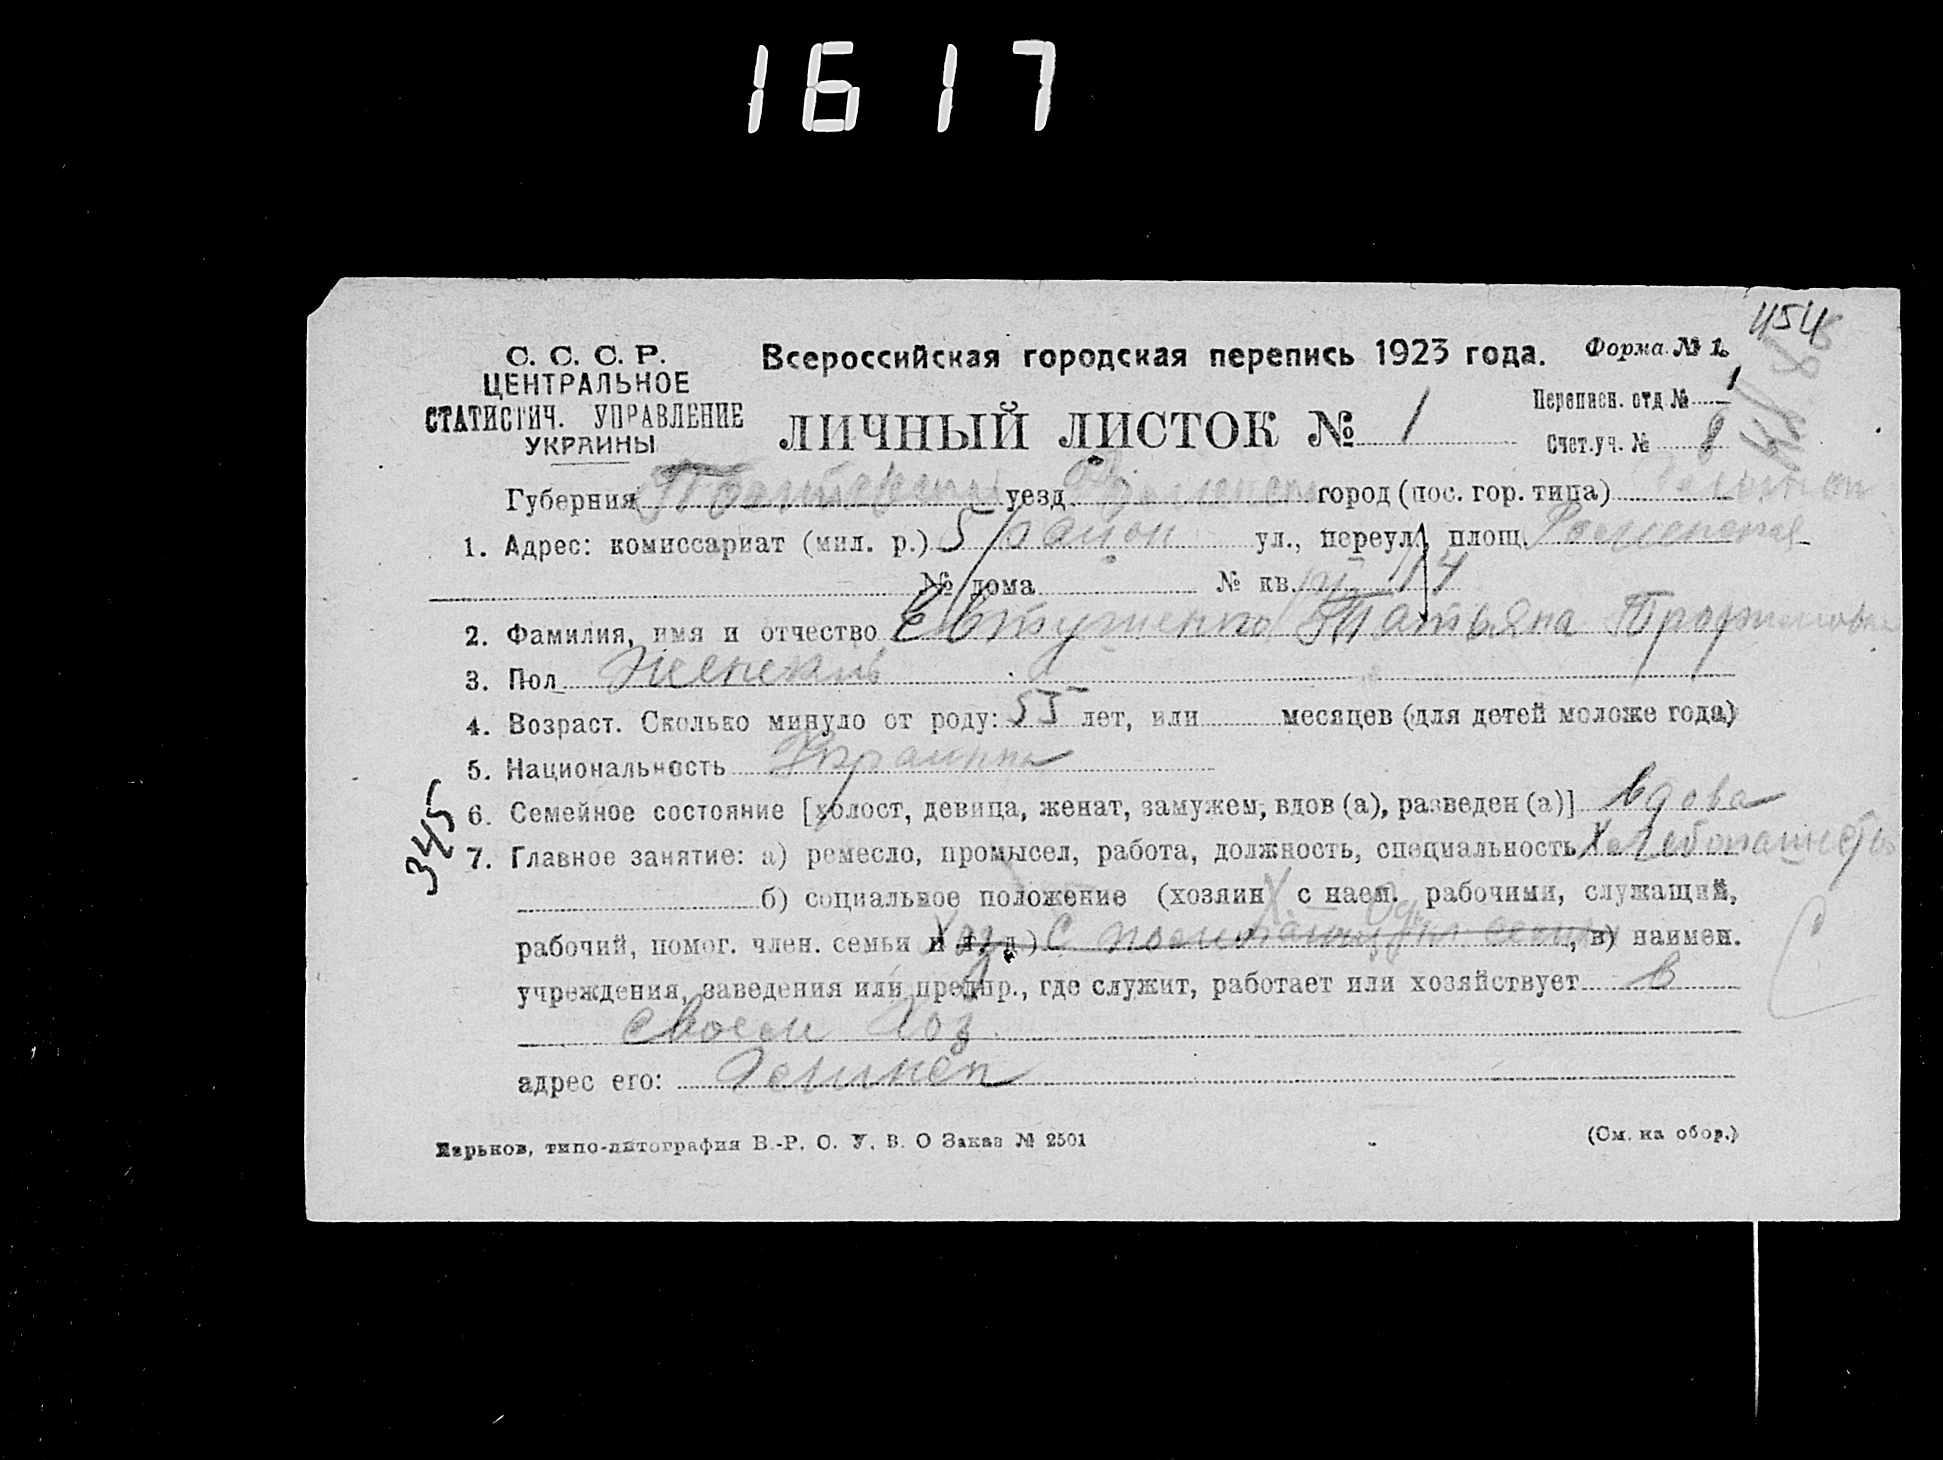 1617
454
С. С. С. Р.
ЦЕНТРАЛЬНОЕ
СТАТИСТИЧ. УПРАВЛЕНИЕ
УКРАИНЫ
Всероссийская городская перепись 1923 года. Форма № 1.
ЛИЧНЫЙ ЛИСТОК № 1
Переписн. отд № 1
Счет.уч. № 8
Губерния Полтавская уезд Роменский город (пос. гор. типа)
1. Адрес: комиссариат (мил. р.) 5 район ул., переул., площ. Роменская
№ дома № кв. 14
2. Фамилия, имя и отчество Евтушенко Татьяна Трофимовна
3. Пол Женский
4. Возраст. Сколько минуло от роду: 55 лет, или месяцев (для детей моложе года)
5. Национальность Украинка
6. Семейное состояние [холост, девица, женат, замужем, вдов (а), разведен (а)] вдова
345
7. Главное занятие: а) ремесло, промысел, работа, должность, специальность Хлебопашество
б) социальное положение (хозяин с наем. рабочими, служащий,
рабочий, помог. член. семьи и т. д.) Хоз. с помогающ. чл. семьи, в) наимен.
учреждения, заведения или предпр., где служит, работает или хозяйствует в
своем хоз.
адрес его:
Харьков, типо-литография В.-Р. О. У. В. О Заказ № 2501 (См. на обор.)